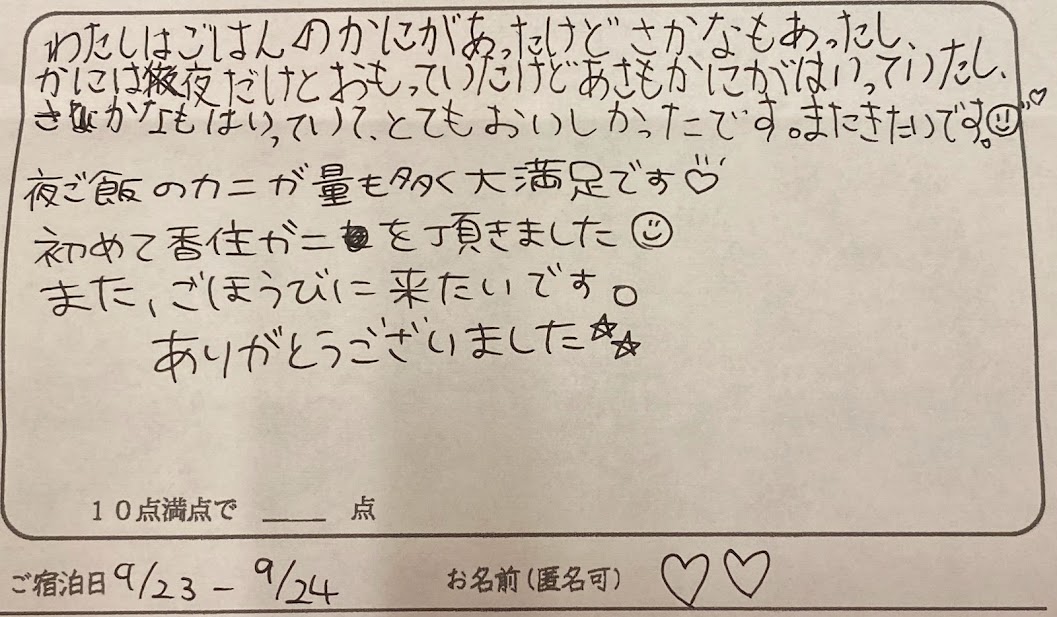 わたしはごはんのかにがあったけどさかなもあったし、
かには夜だけとおもっていたけどあさもかにがはいっていたし、
さかなもはいっていて、とてもおいしかったです。またきたいです。
夜ご飯のカニが量も多く大満足です♡
初めて香住ガニを頂きました
また、ごほうびに来たいです。
ありがとうございました☆☆
10点満点で ＿＿ 点
ご宿泊日 9/23 - 9/24 お名前(匿名可) ♡♡